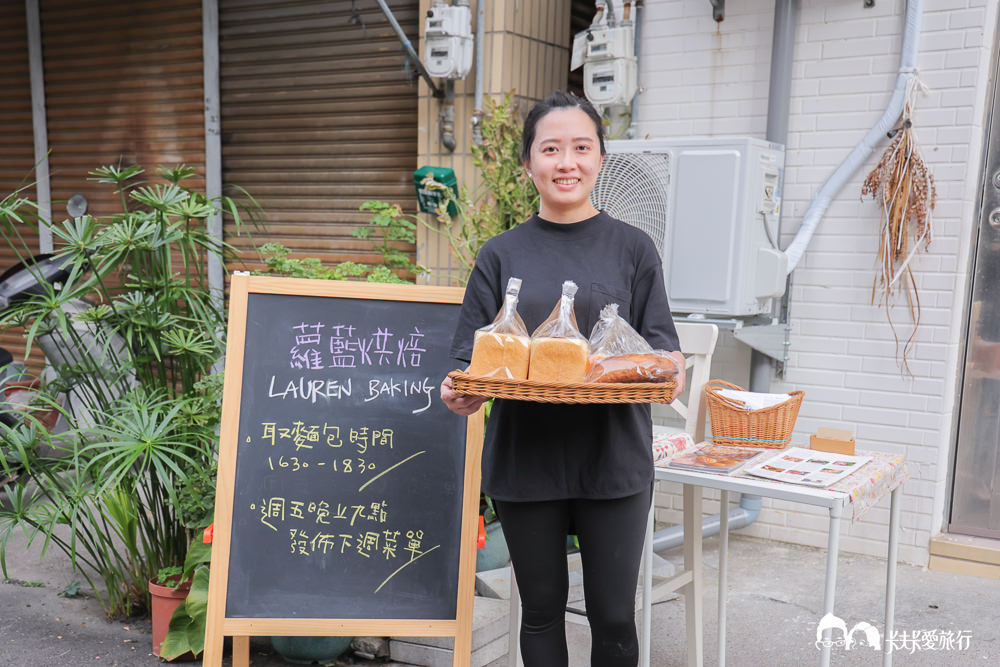 蘿藍烘焙
LAUREN BAKING
取麵包時間
1630 - 1830
週五晚上九點
發佈下週菜單
卡夫卡愛旅行